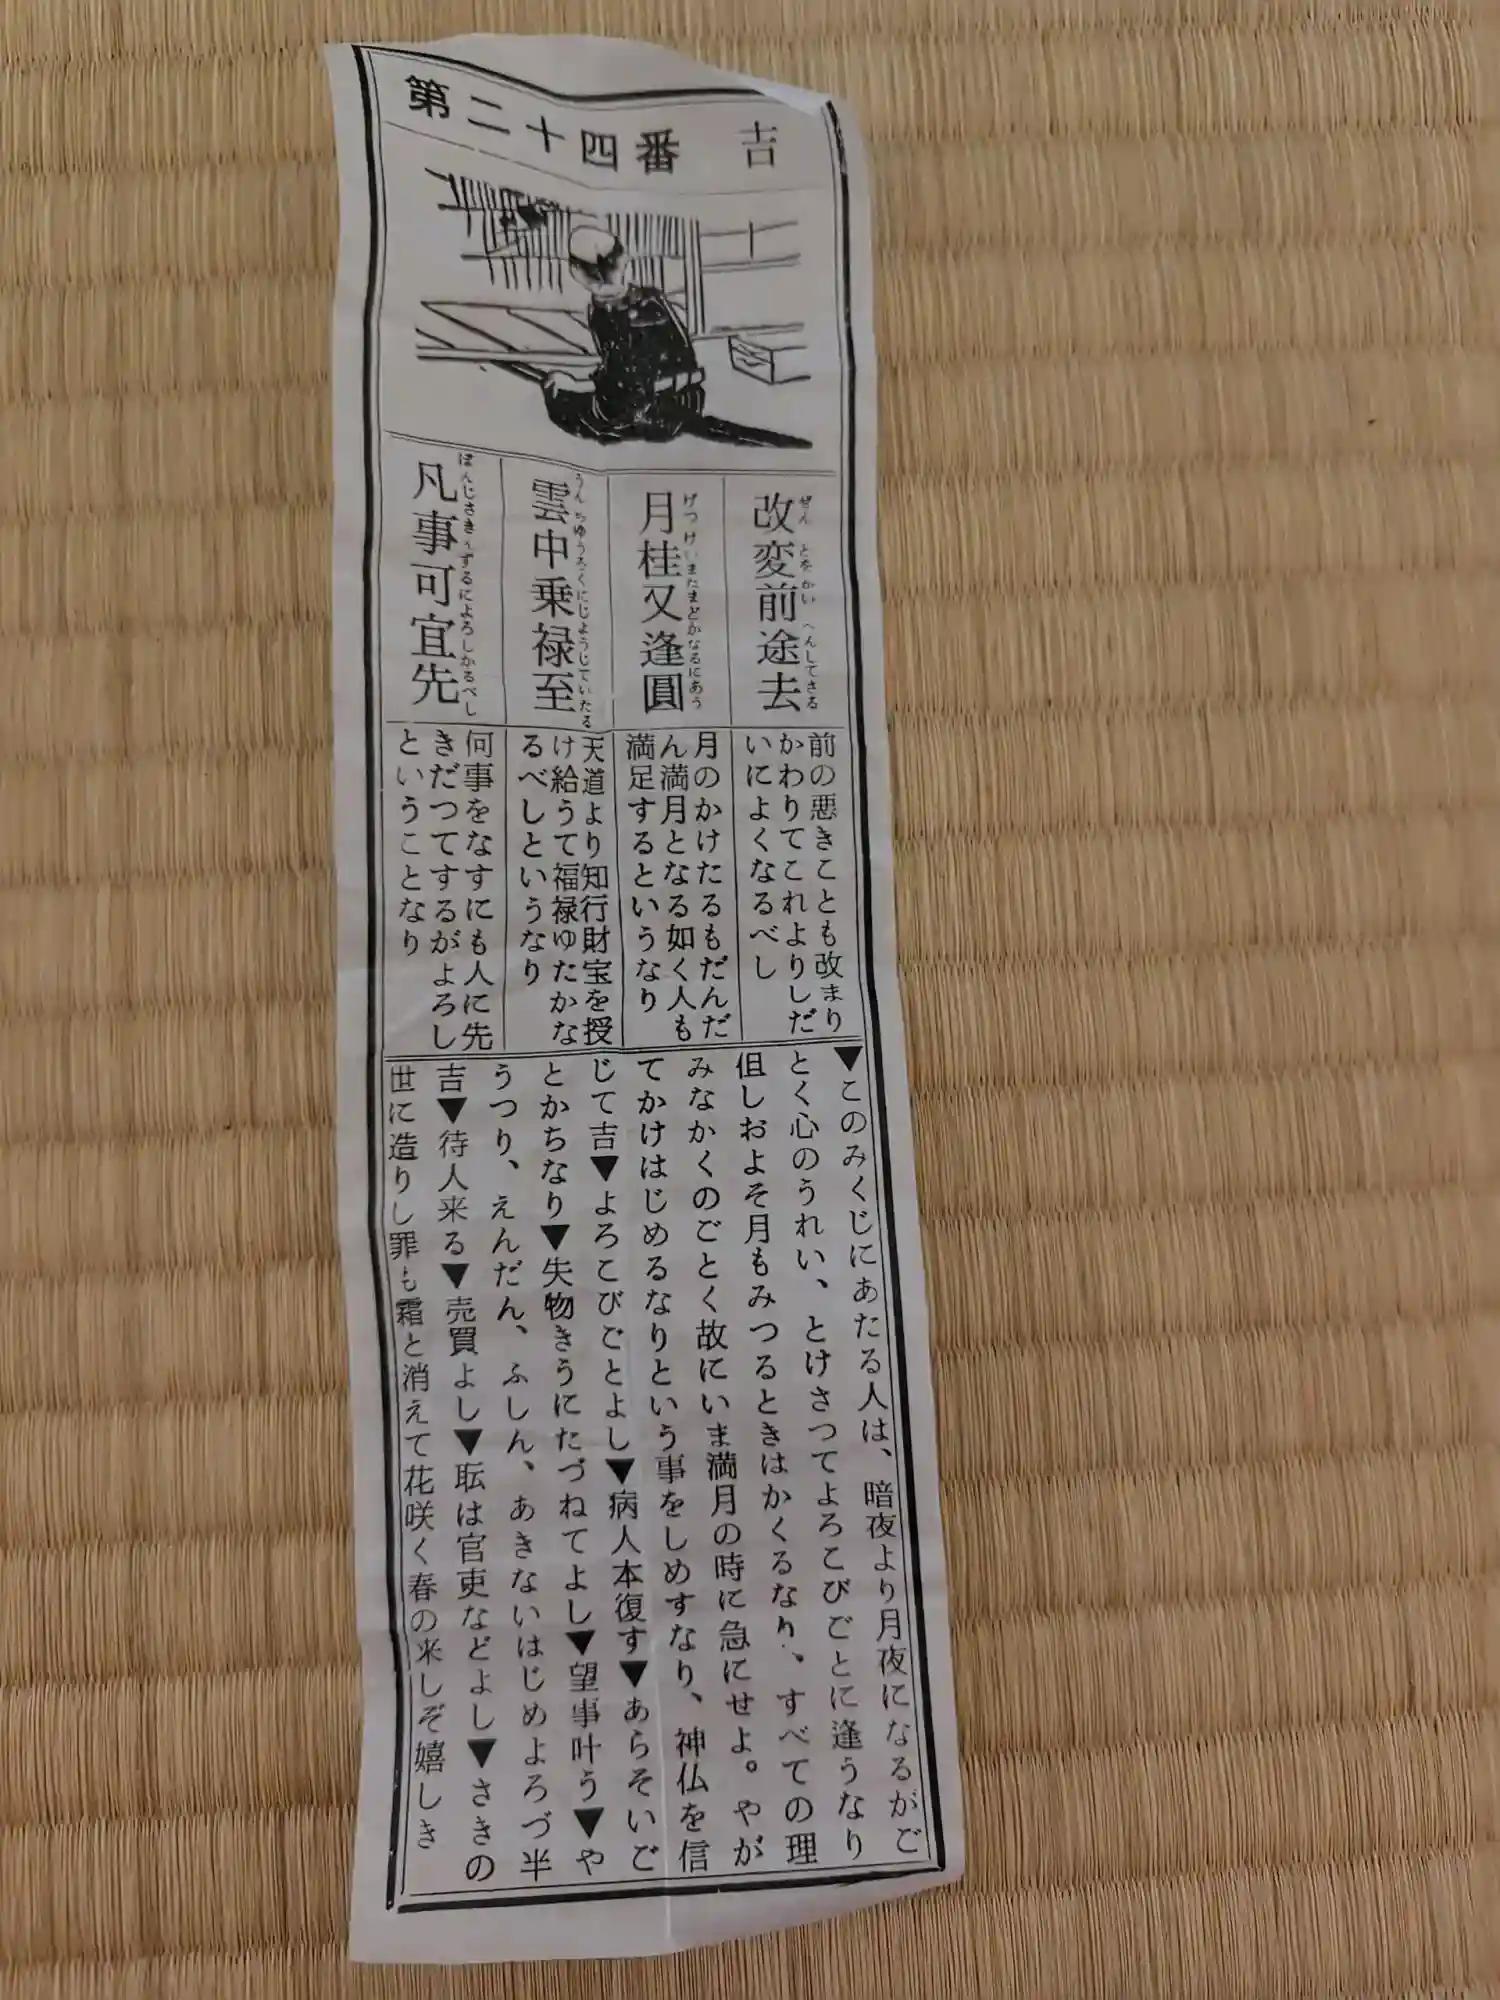 第二十四番 吉
改変前途去
ぜんとをかいへんしてさる
月桂又逢圓
げつけいまたまどかなるにあう
雲中乗禄至
うんちゆうろくにじようじていたる
凡事可宜先
ぼんじさきんずるによろしかるべし
前の悪きことも改まり
かわりてこれよりしだ
いによくなるべし
月のかけたるもだんだ
ん満月となる如く人も
満足するというなり
天道より知行財宝を授
け給うて福禄ゆたかな
るべしというなり
何事をなすにも人に先
きだつてするがよろし
ということなり
▼このみくじにあたる人は、暗夜より月夜になるがご
とく心のうれい、とけさつてよろこびごとに逢うなり
但しおよそ月もみつるときはかくるなり、すべての理
みなかくのごとく故にいま満月の時に急にせよ。やが
てかけはじめるなりという事をしめすなり、神仏を信
じて吉▼よろこびごとよし▼病人本復す▼あらそいご
とかちなり▼失物きうにたづねてよし▼望事叶う▼や
うつり、えんだん、ふしん、あきないはじめよろづ半
吉▼待人来る▼売買よし▼転は官吏などよし▼さきの
世に造りし罪も霜と消えて花咲く春の来しぞ嬉しき